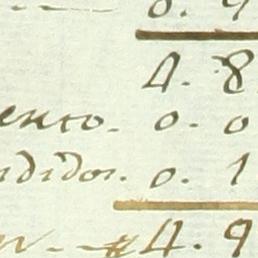 8. 9
4. 8
ento. 0. 0
didos. 0. 1
4. 9